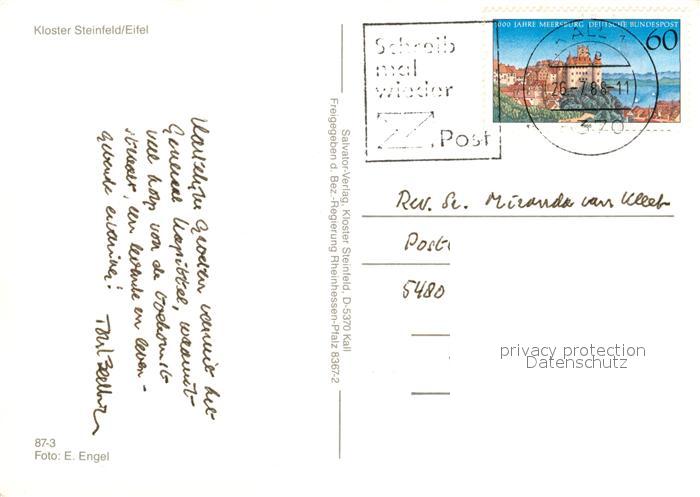 Kloster Steinfeld/Eifel
Hartelijke Groeten vanuit het
Generaal Kapittel, waaruit
veel hoop voor de toekomst
straalt, een levende en leven-
gevende ervaring!
87-3
Foto: E. Engel
Salvator-Verlag, Kloster Steinfeld, D-5370 Kall
Freigegeben d. Bez.-Regierung Rheinhessen-Pfalz 8367-2
Schreib
mal
wieder
Post
1000 JAHRE MEERSBURG DEUTSCHE BUNDESPOST
60
KALL 1
26.-7.88-11
5370
Rev. Sr. Miranda van Kleef
Post
5480
privacy protection
Datenschutz